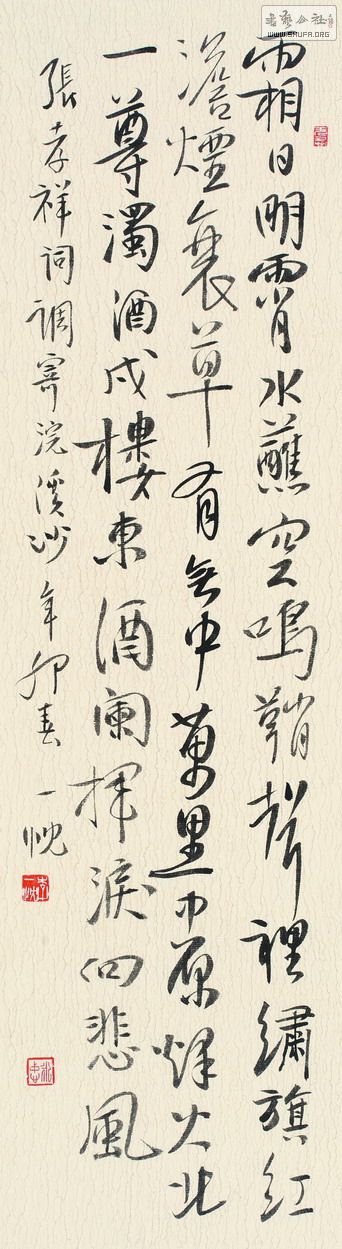 霜日明霄水蘸空鳴鞘聲裡繡旗紅
澹煙衰草有無中萬里中原烽火北
一尊濁酒戍樓東酒闌揮淚向悲風
張孝祥詞調寄浣溪沙辛卯春一忱
書藝公社
WWW.SHUFA.ORG